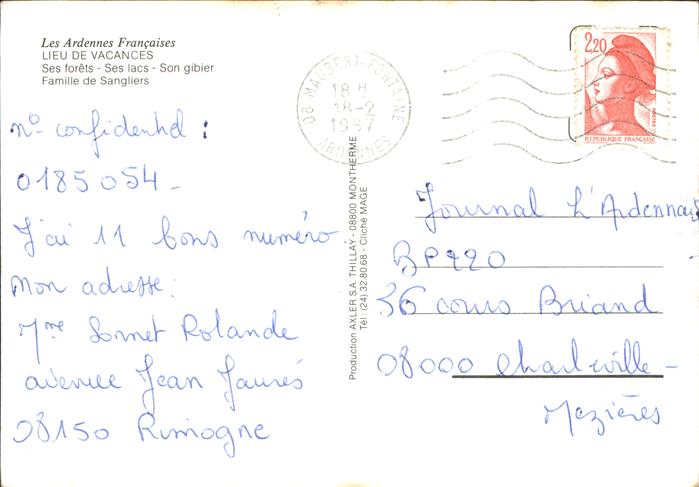 Les Ardennes Françaises
LIEU DE VACANCES
Ses forêts - Ses lacs - Son gibier
Famille de Sangliers
08 MAUBERT-FONTAINE
18 H
18-2
1987
ARDENNES
2,20
POSTES
REPUBLIQUE FRANÇAISE
n° confidentiel :
0185054 -
J'ai 11 bons numéro
Mon adresse :
Mme Sonnet Rolande
avenue Jean Jaurés
08150 Rimogne
Production AXLER S.A. THILLAY - 08800 MONTHERME
Tél : (24) 32.80.68 - Cliché MAGE
Journal L'Ardennais
BP220
36 cours Briand
08000 Charleville -
Mezières